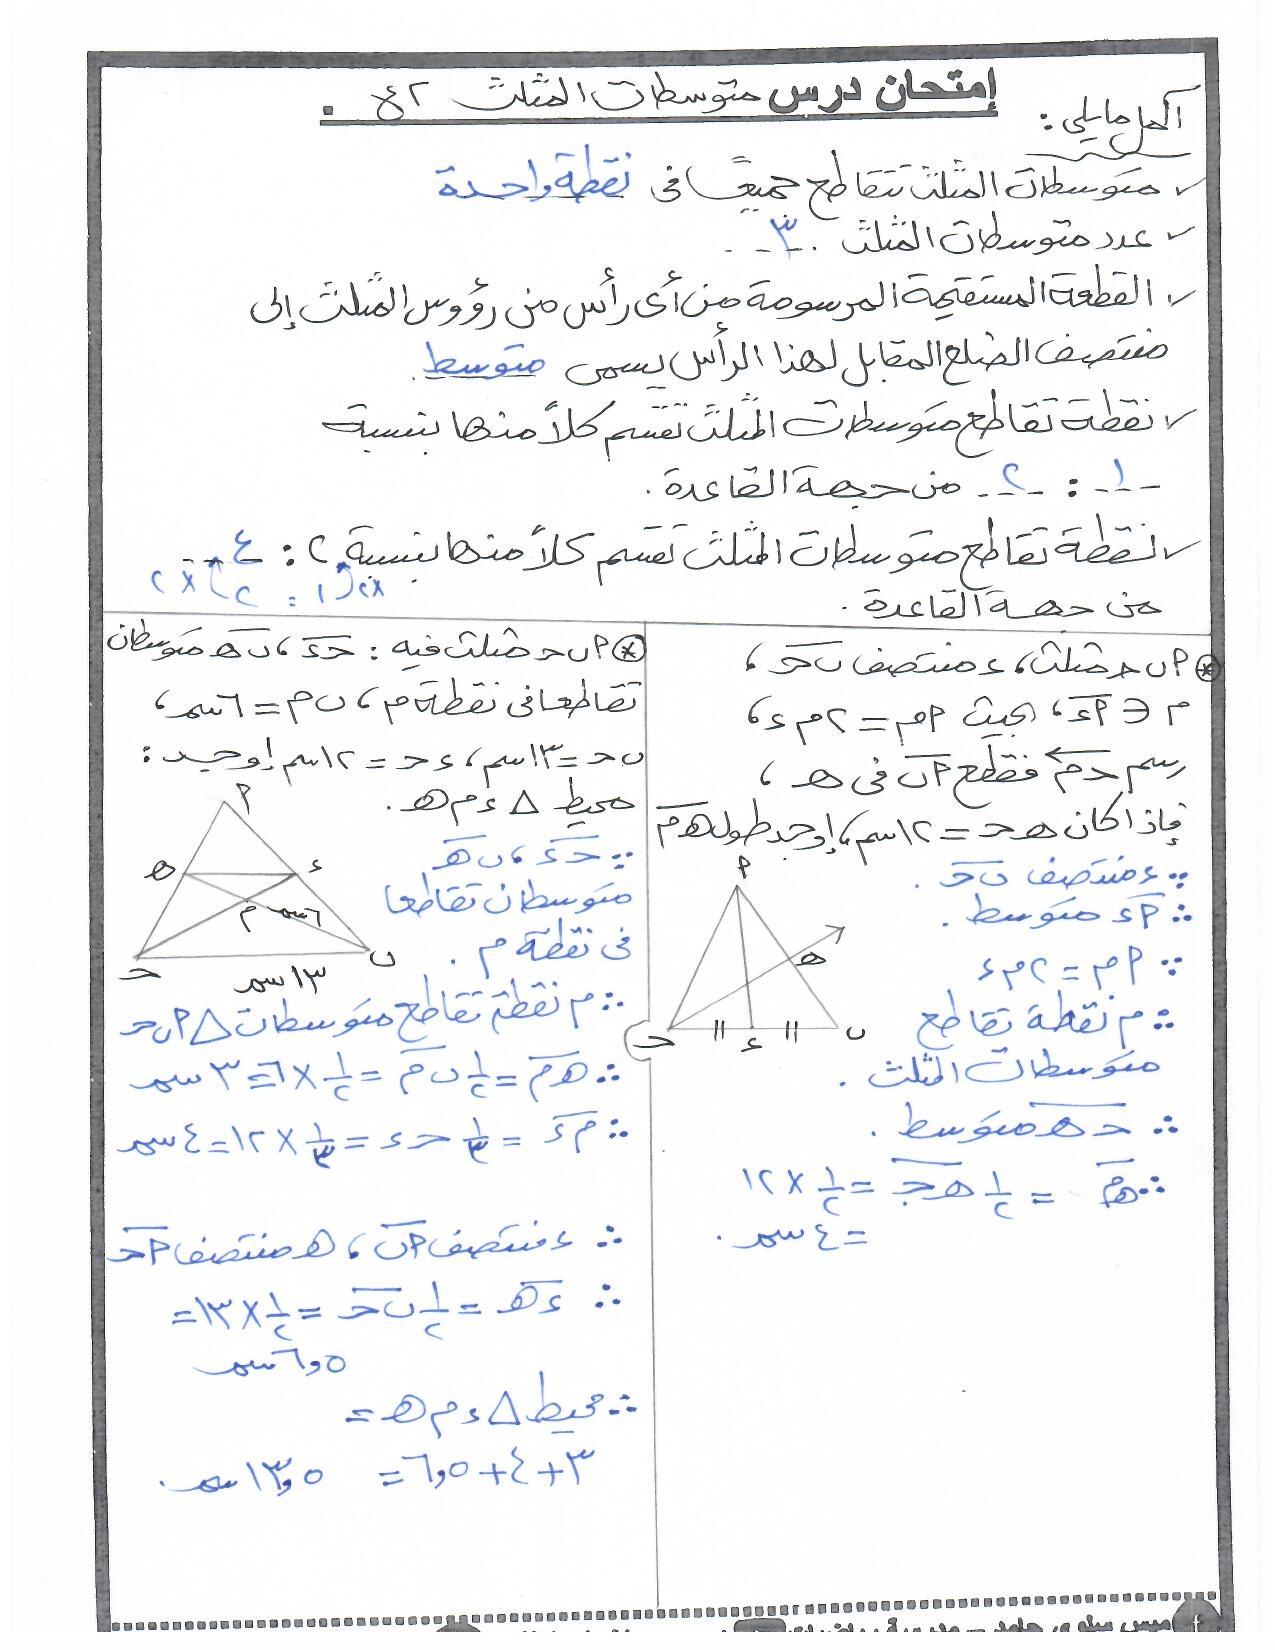 إمتحان درس متوسطات المثلث ٢ع .
أكمل مايلي :
✓ متوسطات المثلث تتقاطع جميعًا فى نقطة واحدة
✓ عدد متوسطات المثلث ٣
✓ القطعة المستقيمة المرسومة من أى رأس من رؤوس المثلث إلى
منتصف الضلع المقابل لهذا الرأس يسمى متوسط.
✓ نقطة تقاطع متوسطات المثلث تقسم كلاً منها بنسبة
١ : ٢ من جهة القاعدة .
✓ نقطة تقاطع متوسطات المثلث تقسم كلاً منها بنسبة ٢ : ٤
٢× ( ١ : ٢ ) ×٢
من جهة القاعدة .
* ٩ب ح مثلث، ء منتصف ب ح،
م ∈ ٩ء، بحيث ٩م = ٢م ء،
رسم ح م فقطع ٩ب فى هـ،
فإذا كان هـ ح = ١٢سم، إوجد طول هـ م
∵ ء منتصف ب ح .
∴ ٩ء متوسط .
∵ ٩م = ٢م ء
∴ م نقطة تقاطع
متوسطات المثلث .
∴ ح هـ متوسط .
∴ هـ م = ١/٢ هـ ج = ١/٢ × ١٢
= ٤ سم .
٩
هـ
ح ء ب
* ٩ب ح مثلث فيه : ح ء، ب هـ متوسطان
تقاطعا فى نقطة م، ب م = ٦سم،
ب ح = ١٣سم، ء ح = ١٢سم إوجد :
محيط △ ء م هـ .
∵ ح ء، ب هـ
متوسطان تقاطعا
فى نقطة م .
٩
هـ ء
م ٦سم
ح ب
١٣ سم
∴ م نقطة تقاطع متوسطات △ ٩ب ح
∴ هـ م = ١/٢ ب م = ١/٢ × ٦ = ٣ سم
∴ م ء = ١/٣ ح ء = ١/٣ × ١٢ = ٤ سم
∴ ء منتصف ٩ب، هـ منتصف ٩ح
∴ ء هـ = ١/٢ ب ح = ١/٢ × ١٣ =
٦,٥ سم
∴ محيط △ ء م هـ =
٣ + ٤ + ٦,٥ = ١٣,٥ سم .